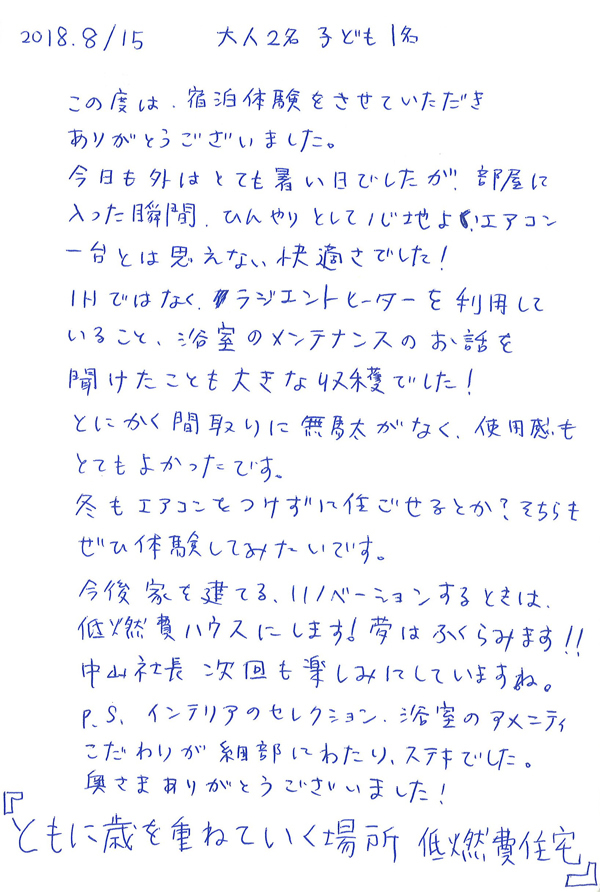 2018.8/15 大人2名 子ども1名
この度は、宿泊体験をさせていただき
ありがとうございました。
今日も外はとても暑い日でしたが、部屋に
入った瞬間、ひんやりとして心地よいエアコン
一台とは思えない快適さでした!
IHではなく、ラジエントヒーターを利用して
いること、浴室のメンテナンスのお話を
聞けたことも大きな収穫でした!
とにかく間取りに無駄がなく、使用感も
とてもよかったです。
冬もエアコンをつけずに過ごせるとか?そちらも
ぜひ体験してみたいです。
今後家を建てる、リノベーションするときは、
低燃費ハウスにします!夢はふくらみます!!
中山社長 次回も楽しみにしていますね。
P.S. インテリアのセレクション、浴室のアメニティ
こだわりが細部にわたり、ステキでした。
奥さまありがとうございました!
『ともに歳を重ねていく場所 低燃費住宅』